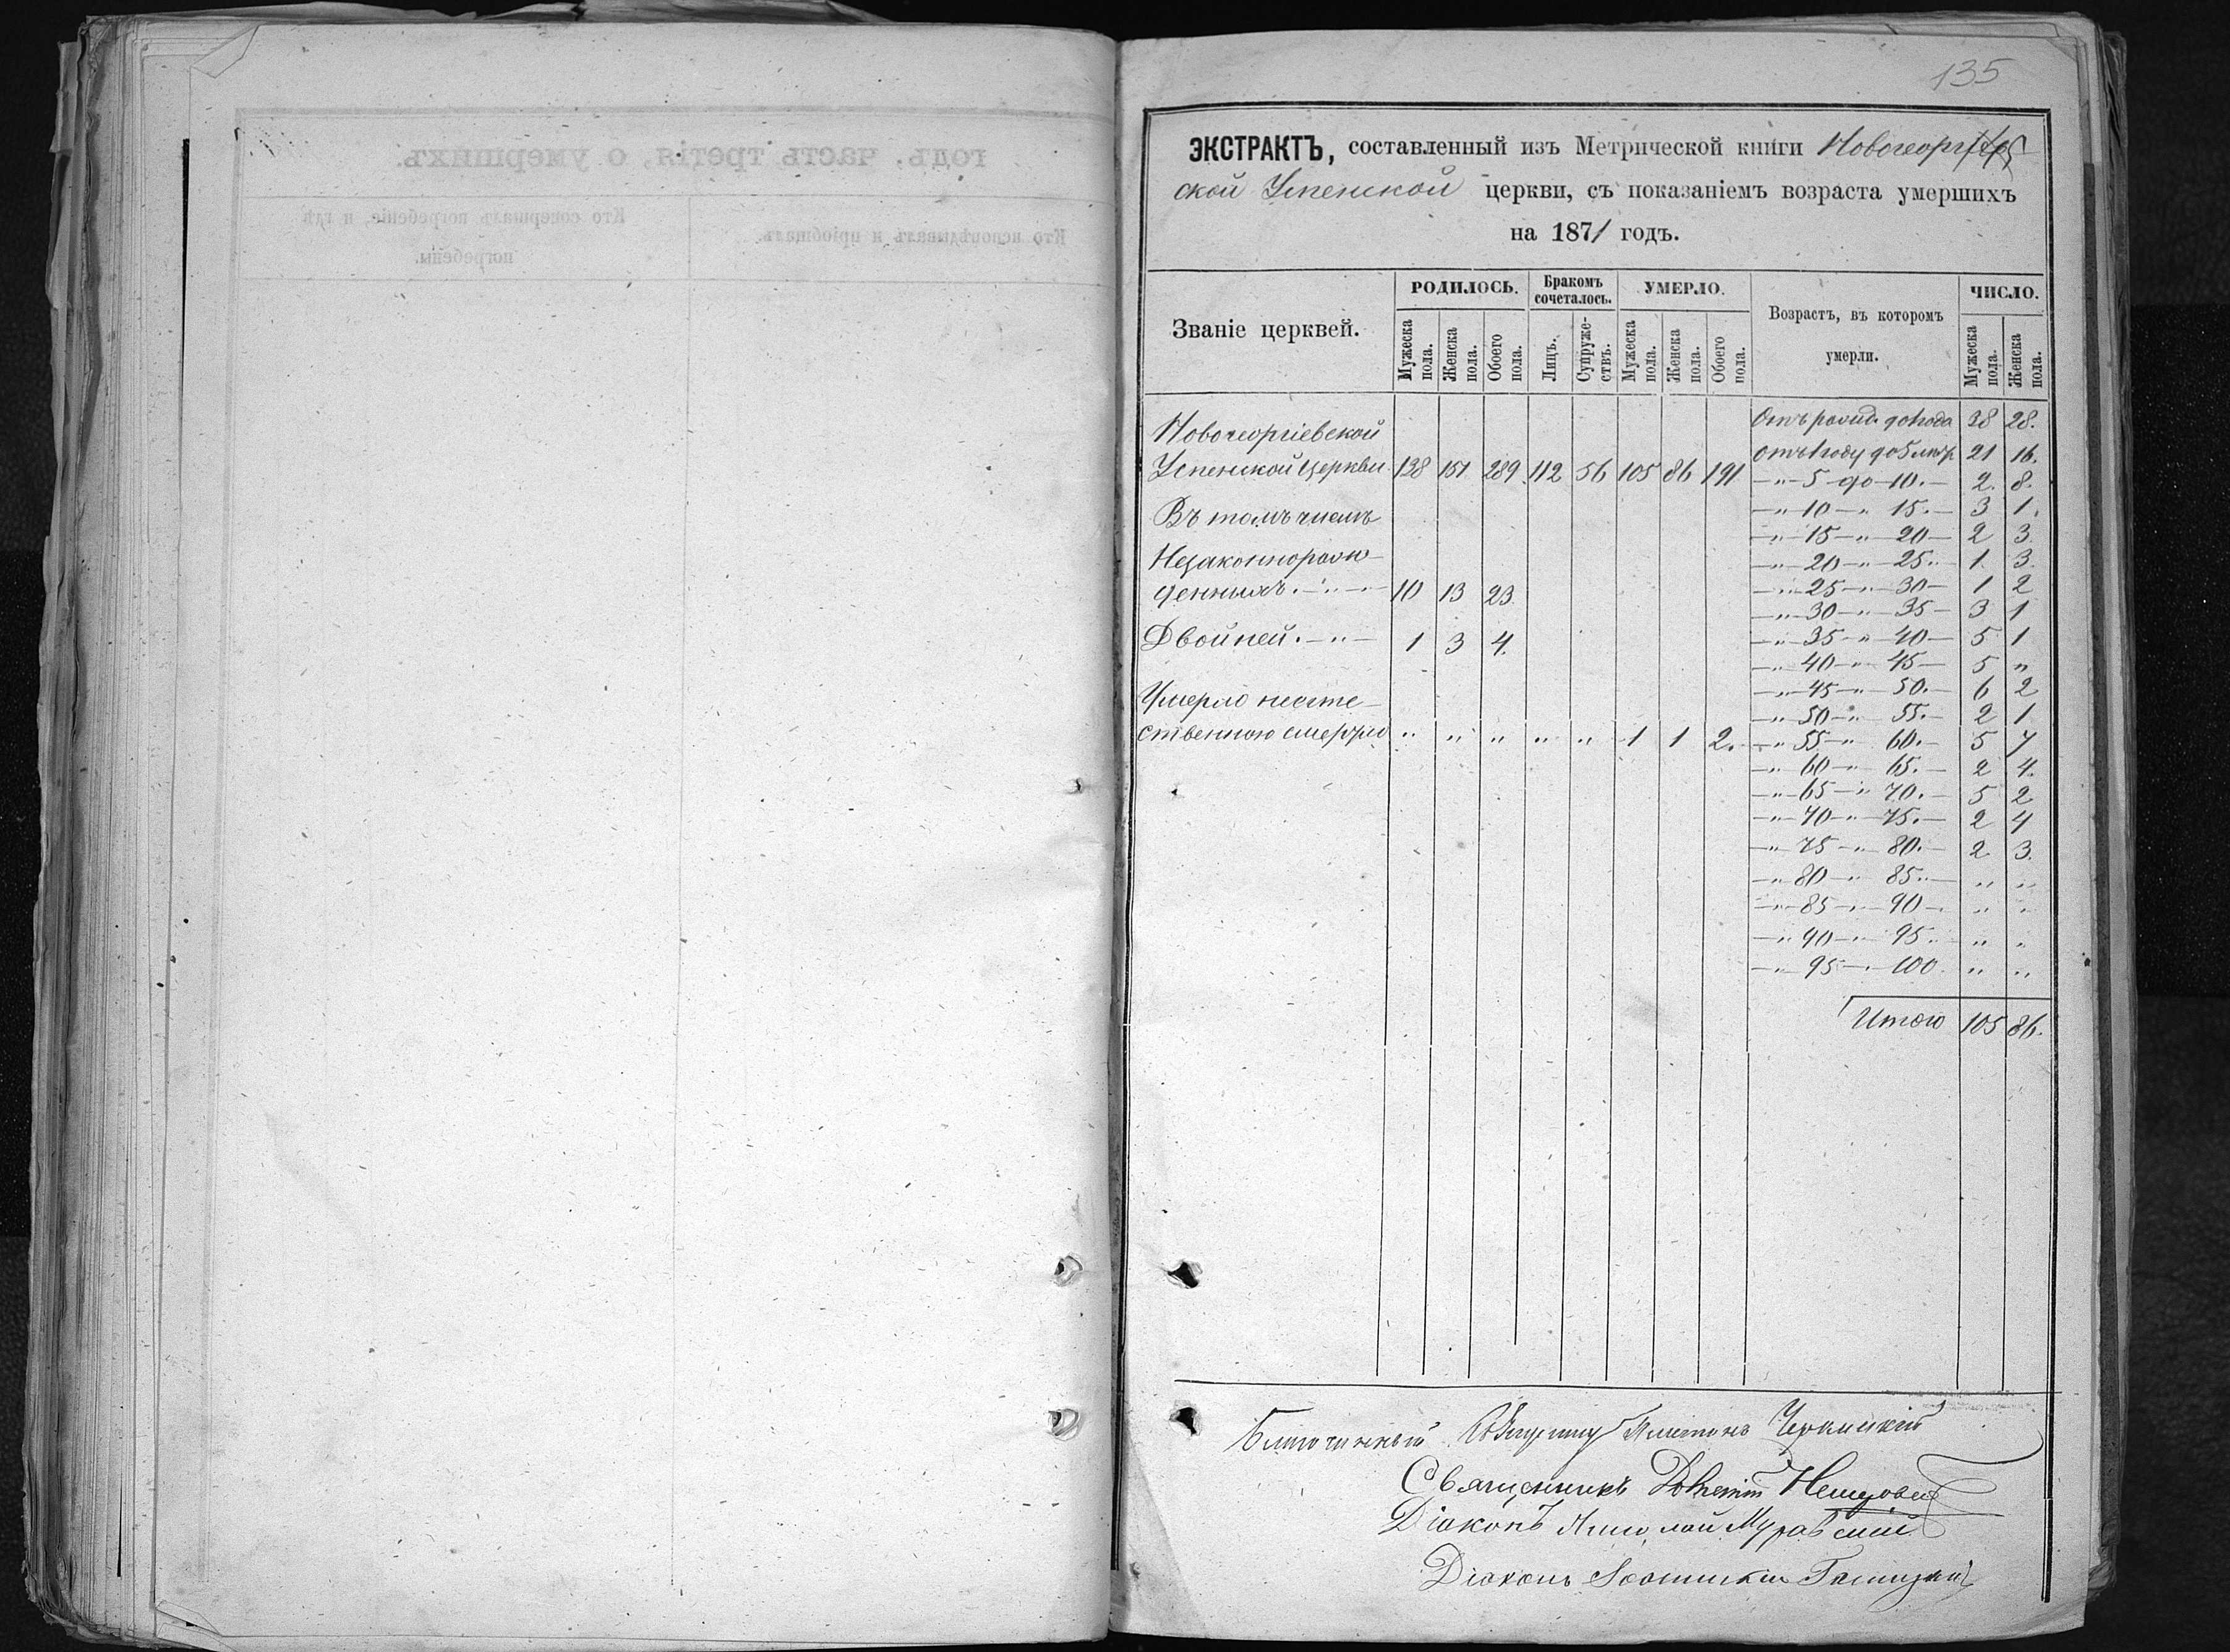 135
ЭКСТРАКТЪ, составленный изъ Метрической книги Новогеоргіев
ской Успенской церкви, съ показаніемъ возраста умершихъ
на 1871 годъ.
Званіе церквей. РОДИЛОСЬ. Бракомъ сочеталось. УМЕРЛО. Возрастъ, въ которомъ умерли. ЧИСЛО.
Мужеска пола. Женска пола. Обоего пола. Лицъ. Супружествъ. Мужеска пола. Женска пола. Обоего пола. Мужеска пола. Женска пола.
Новогеоргіевской
Успенской церкви 138 151 289 112 56 105 86 191
Въ томъ числѣ
Незаконнорож-
денныхъ. — " — 10 13 23.
Двойней. — " — 1 3 4.
Умерло неесте-
ственною смертію " " " " " 1 1 2.
Отъ рожд. до года 38 28.
Отъ 1 году до 5 лѣтъ 21 16.
— " — 5 — до — 10. — 2. 8.
— " 10 — " 15. — 3 1.
— " 15 — " 20 — 2 3.
— " 20 — " 25. 1. 3.
— " 25 — " 30 — 1 2
— " 30 — " 35 — 3 1
— " 35 — " 40 — 5 1
— " 40 — " 45 — 5 "
— " 45 — " 50. — 6 2
— " 50 — " 55. — 2 1
— " 55 — " 60. — 5 7
— " 60 — " 65. — 2 4.
— " 65 — " 70. — 5 2
— " 70 — " 75. — 2 4
— " 75 — " 80. — 2. 3.
— " 80 — " 85. — " "
— " 85 — " 90 — " "
— " 90 — " 95. " "
— " 95 — " 100. " "
Итого 105 86.
Благочинный Платонъ
Священникъ
Діаконъ Николай Муравскій
Діаконъ
годъ. часть третія, о умершихъ.
Кто исповѣдывалъ и пріобщалъ.
Кто совершалъ погребеніе, и гдѣ
погребены.